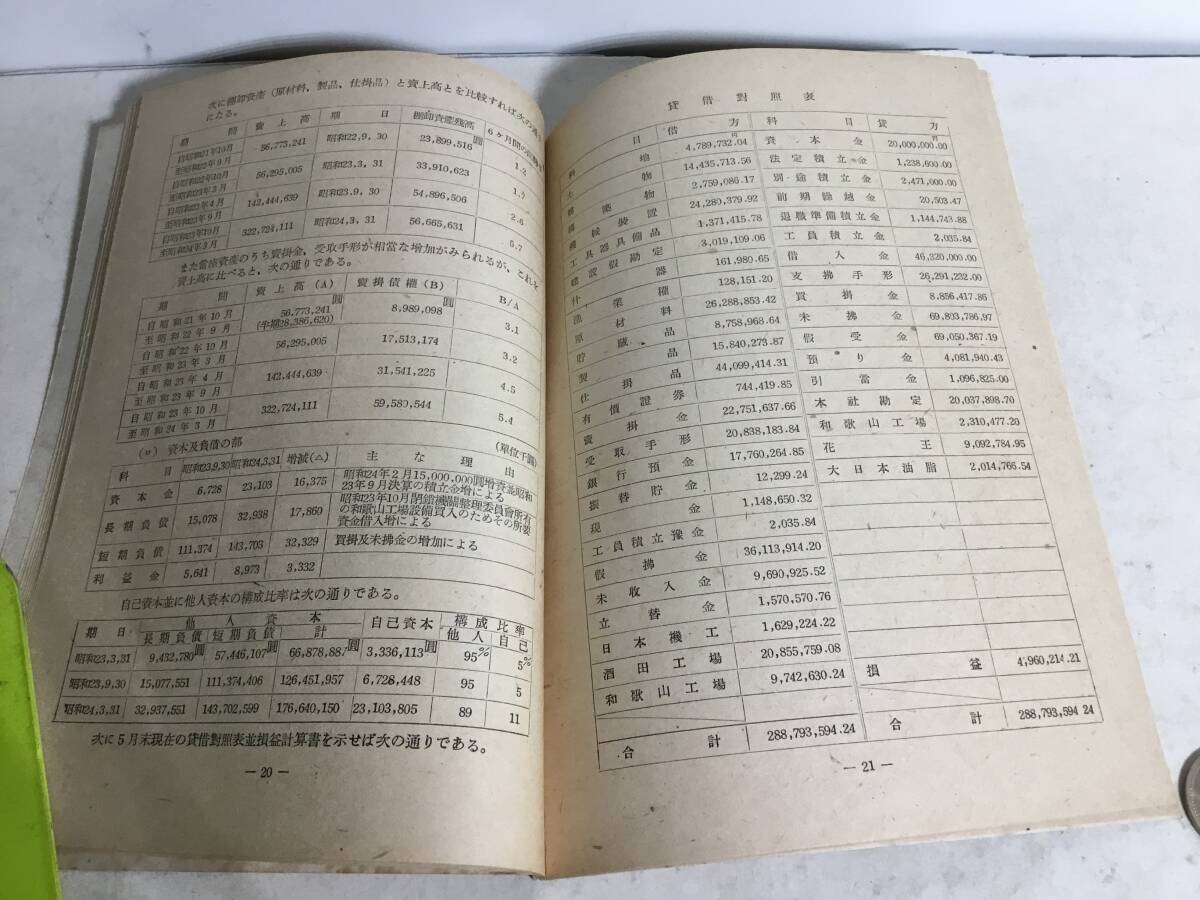 次に棚卸資産(原材料、製品、仕掛品)と賣上高とを比較すれば次の通り
になる。
期間 賣上高 期日 棚卸資産残高 6ケ月間の
自昭和21年10月 至昭和22年9月 56,773,241 昭和22,9,30 23,899,516圓 1.2
自昭和22年10月 至昭和23年3月 56,295,005 昭和23,3,31 33,910,623 1.7
自昭和23年4月 至昭和23年9月 142,444,639 昭和23.9.30 54,896,506 2.6
自昭和23年10月 至昭和24年3月 322,724,111 昭和24,3,31 56,665,631 5.7
また當座資産のうち賣掛金、受取手形が相當な増加がみられるが、これを
賣上高に比べると、次の通りである。
期間 賣上高(A) 賣掛債權(B) B/A
自昭和21年10月 至昭和22年9月 56,773,241圓 (半期28,386,620) 8,989,098圓 3.1
自昭和22年10月 至昭和23年3月 56,295,005 17,513,174 3.2
自昭和23年4月 至昭和23年9月 142,444,639 31,541,225 4.5
自昭和23年10月 至昭和24年3月 322,724,111 59,580,544 5.4
(ロ) 資本及負債の部 (單位千圓)
科目 昭和23,9,30 昭和24,3,31 増減(△) 主な理由
資本金 6,728 23,103 16,375 昭和24年2月15,000,000圓増資並昭和23年9月決算の積立金増による
長期負債 15,078 32,938 17,860 昭和23年10月閉鎖機關整理委員會所有の和歌山工場設備買入のためその所要資金借入増による
短期負債 111,374 143,703 32,329 買掛及未拂金の増加による
利益金 5,641 8,973 3,332
自己資本並に他人資本の構成比率は次の通りである。
期日 他人資本 自己資本 構成比率
長期負債 短期負債 計 他人 自己
昭和23,3,31 9,432,780圓 57,446,107圓 66,878,887圓 3,336,113圓 95% 5%
昭和23,9,30 15,077,551 111,374,406 126,451,957 6,728,448 95 5
昭和24,3,31 32,937,551 143,702,599 176,640,150 23,103,805 89 11
次に5月末現在の貸借對照表並損益計算書を示せば次の通りである。
— 20 —
貸借對照表
科目 借方 科目 貸方
土地 4,789,732.04円 資本金 20,000,000.00円
建物 14,435,713.56 法定積立金 1,238,600.00
構築物 2,759,086.17 別途積立金 2,471,000.00
機械裝置 24,289,379.92 前期繰越金 20,503.47
工具器具備品 1,371,415.78 退職準備積立金 1,144,743.88
建設假勘定 3,019,109.06 工員積立金 2,035.84
什器 161,980.65 借入金 46,320,000.00
漁業權 128,151.20 支拂手形 26,291,232.00
原材料 26,288,853.42 買掛金 8,856,417.86
貯蔵品 8,758,968.64 未拂金 69,803,786.97
製品 15,840,273.87 假受金 69,050,367.19
仕掛品 44,099,414.31 預り金 4,081,940.43
有價證券 744,419.85 引當金 1,096,825.00
賣掛金 22,751,637.66 本社勘定 20,037,898.70
受取手形 20,838,183.84 和歌山工場 2,310,477.20
銀行預金 17,760,264.85 花王 9,092,784.95
振替貯金 12,299.24 大日本油脂 2,014,766.54
現金 1,148,650.32
工員積立豫金 2,035.84
假拂金 36,113,914.20
未收入金 9,690,925.52
立替金 1,570,570.76
日本機工 1,629,224.22
酒田工場 20,855,759.08
和歌山工場 9,742,630.24 損益 4,960,214.21
合計 288,793,594.24 合計 288,793,594 24
— 21 —